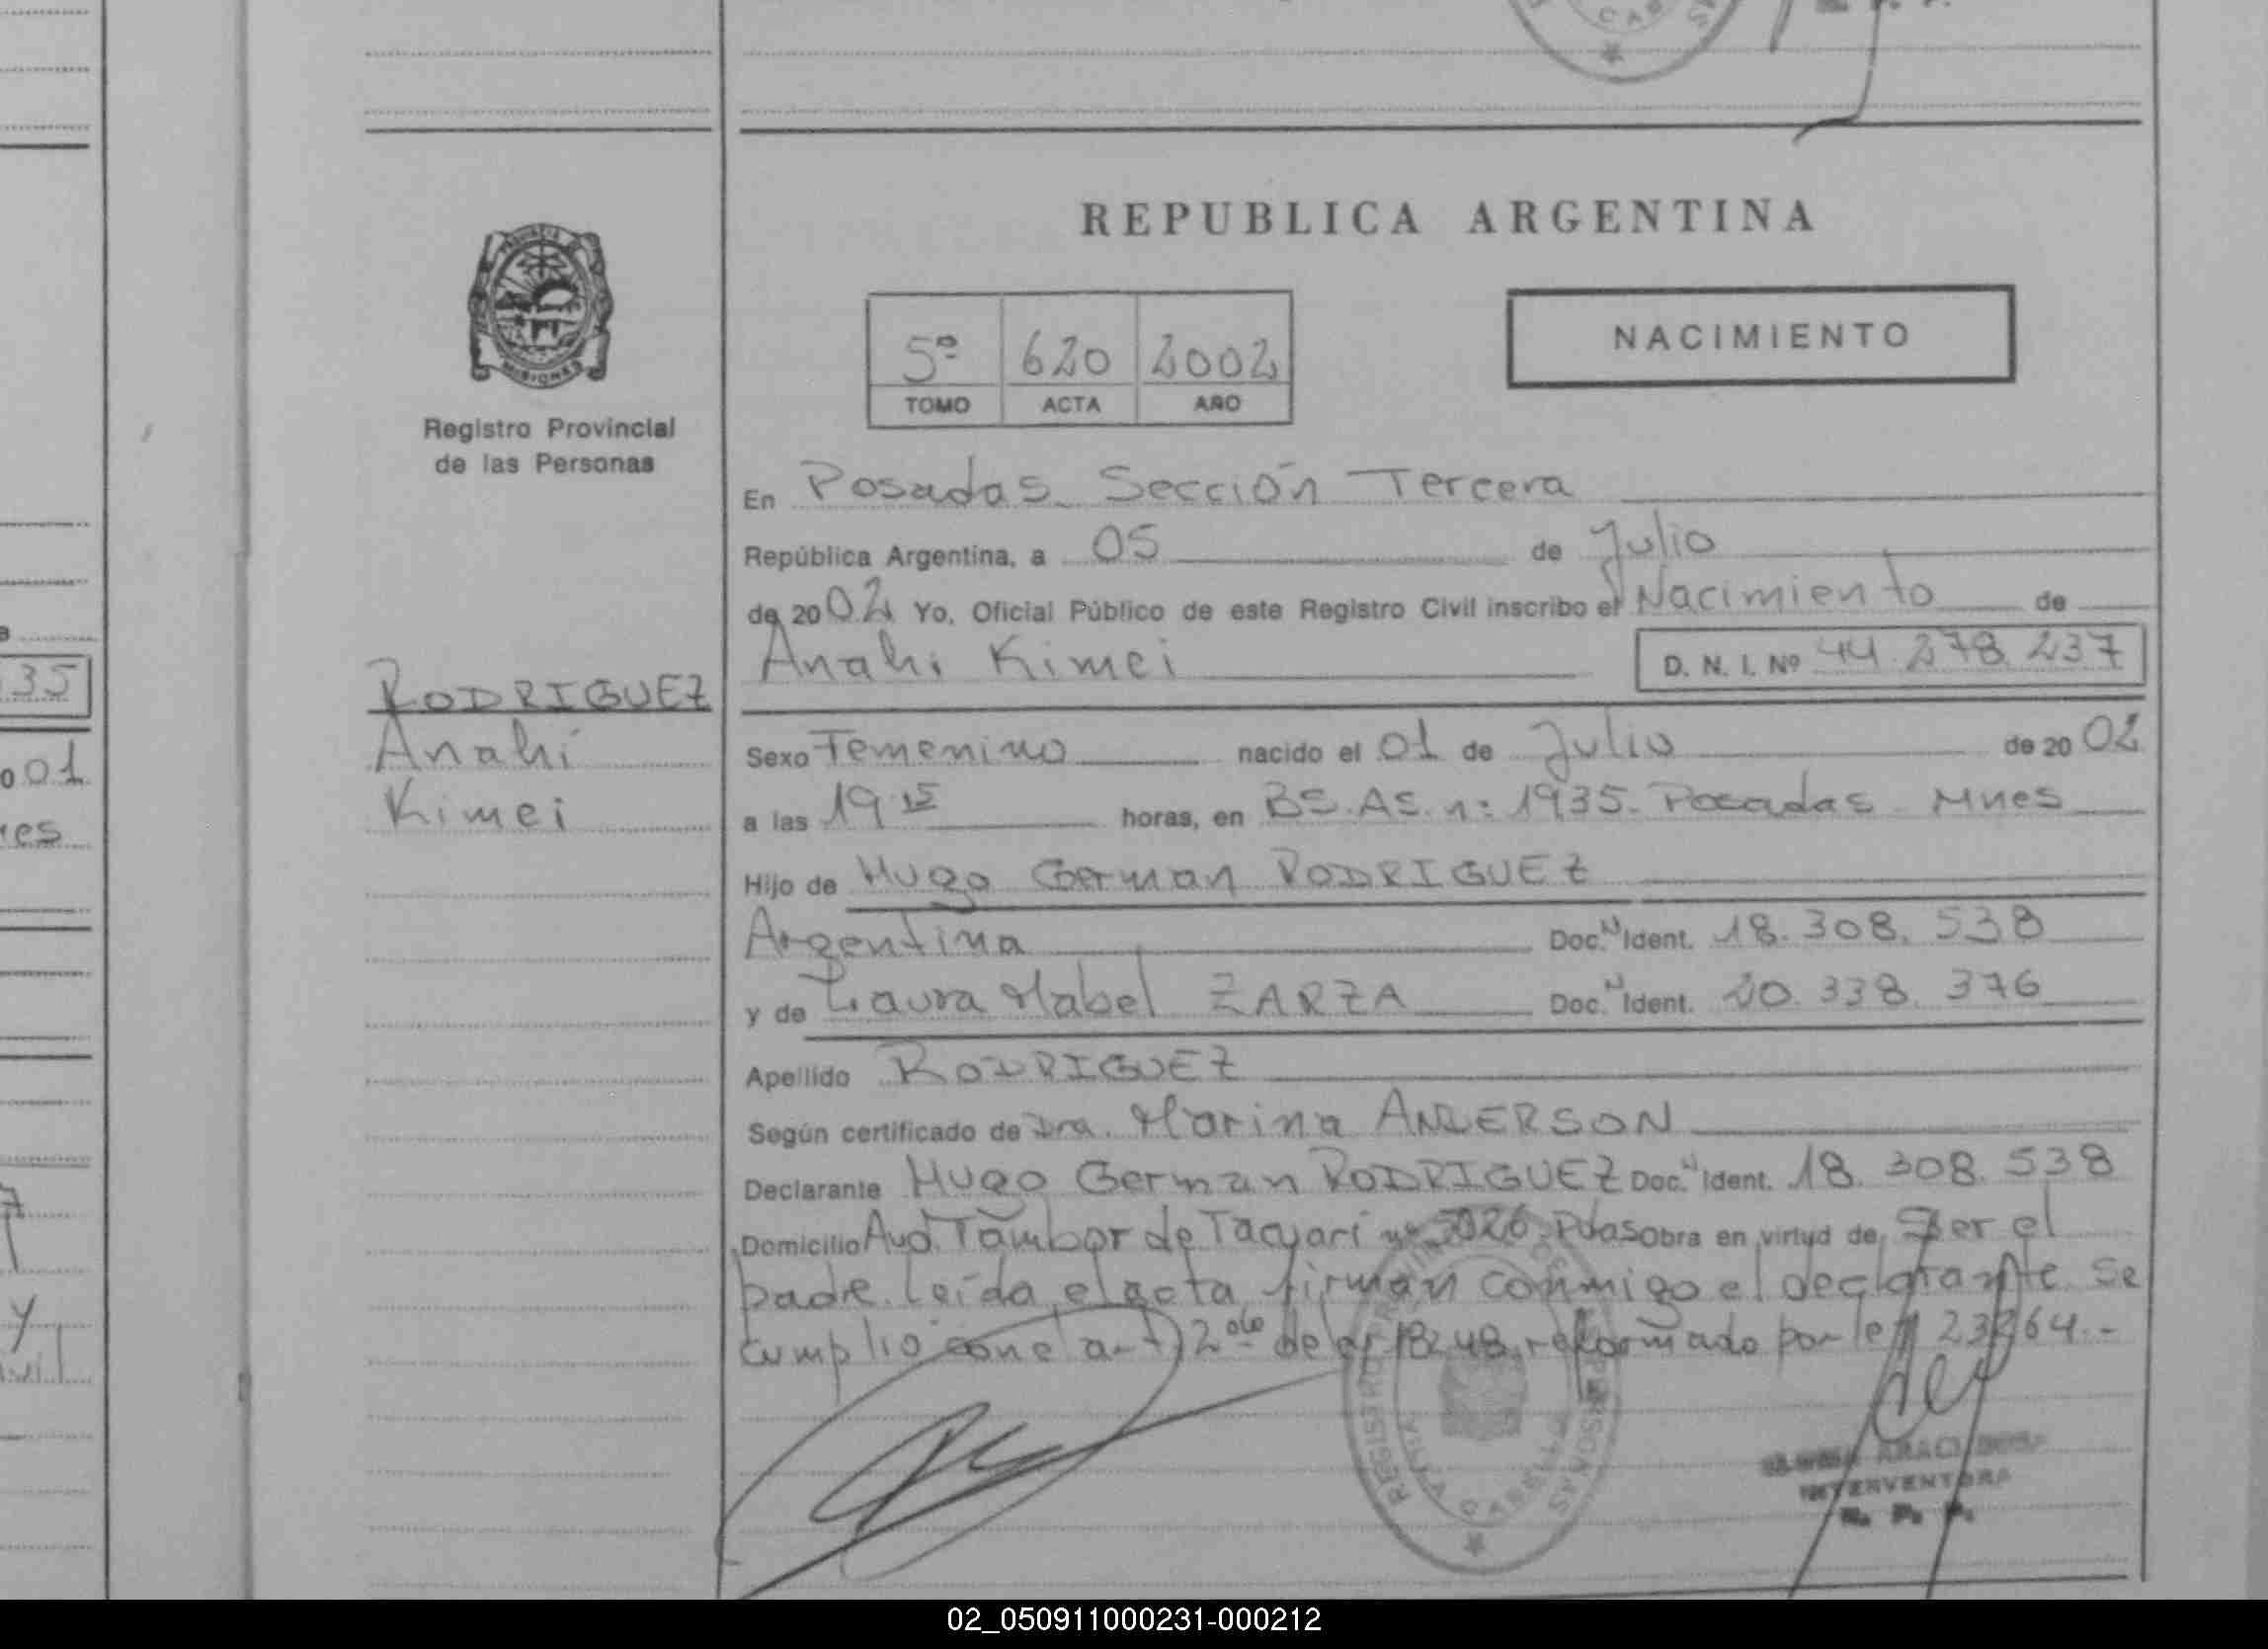 REPUBLICA ARGENTINA
PROVINCIA DE
MISIONES
Registro Provincial
de las Personas
5º 620 2002
TOMO ACTA AÑO
NACIMIENTO
En Posadas Sección Tercera
República Argentina, a 05 de Julio
de 2002 Yo, Oficial Público de este Registro Civil inscribo el Nacimiento de
Anahi Kimei D. N. I. Nº 44.278.237
RODRIGUEZ
Anahí
Kimei
Sexo Femenino nacido el 01 de Julio de 2002
a las 19 15 horas, en BS.AS. n: 1935. Posadas Mnes
Hijo de Hugo German RODRIGUEZ
Argentina Doc. N Ident. 18.308.538
y de Laura Mabel ZARZA Doc. N Ident. 20.338.376
Apellido RODRIGUEZ
Según certificado de Dra. Marina ANDERSON
Declarante Hugo German RODRIGUEZ Doc. N Ident. 18.308.538
Domicilio Avd. Tambor de Tacuarí nº 5026 Pdas Obra en virtud de Ser el
padre. Leída el acta, firman conmigo el declarante se
cumplio con el art 2 de 18248 reformado por ley 23264.-
REGISTRO PERSONAS
INTERVENTORA
R. P. P.
35
001
02_050911000231-000212